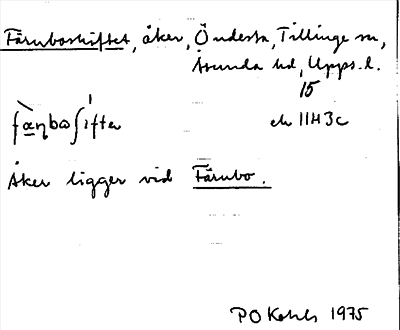 Färnboskiftet, åker, Öndesta, Tillinge sn,
Åsunda hd, Upps. l.
15
fæŋboʃiftə ek 11H3c
Åker ligger vid Färnbo.
PO 1975